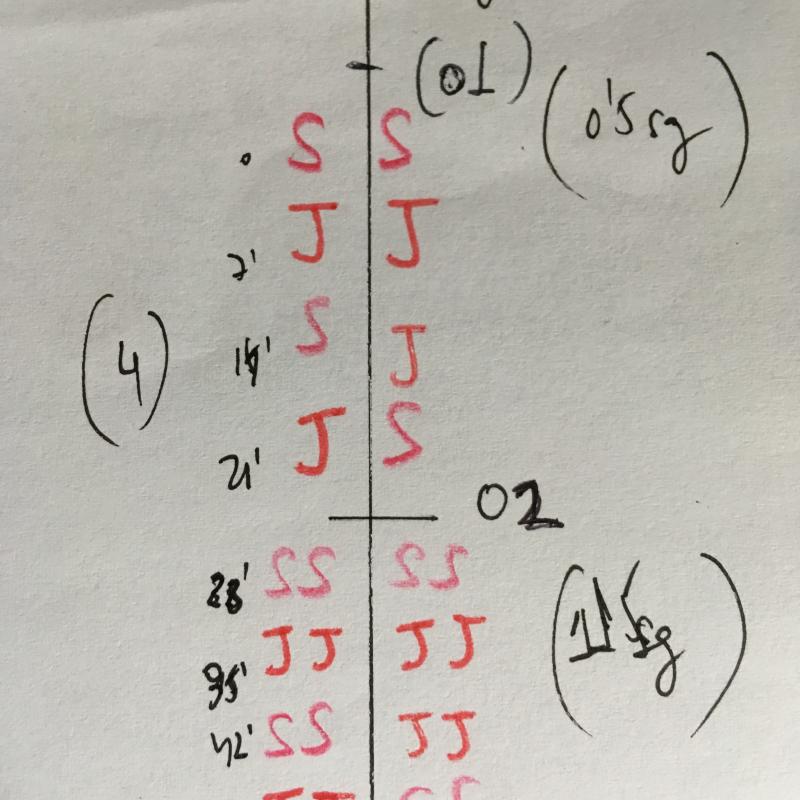 (01)
(0'5 sg)
0 S S
7' J J
14' S J
(4)
21' J S
02
28' SS SS
35' JJ JJ
42' SS JJ